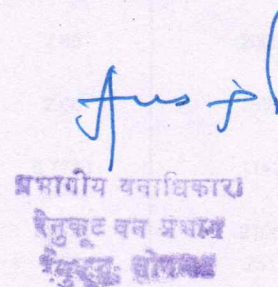 प्रभागीय वनाधिकारी
रेनुकूट वन प्रभाग
रेनुकूट, सोनभद्र